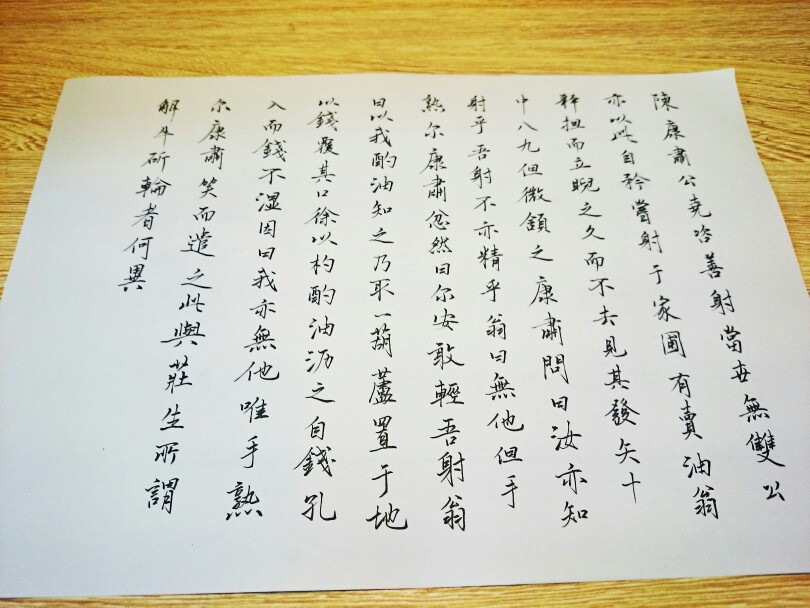 陳康肅公堯咨善射當世無雙公
亦以此自矜嘗射于家圃有賣油翁
釋担而立睨之久而不去見其發矢十
中八九但微頷之康肅問曰汝亦知
射乎吾射不亦精乎翁曰無他但手
熟尔康肅忿然曰尔安敢輕吾射翁
曰以我酌油知之乃取一葫蘆置于地
以錢覆其口徐以杓酌油沥之自錢孔
入而錢不濕因曰我亦無他唯手熟
尔康肅笑而遣之此與莊生所謂
解牛斫輪者何異